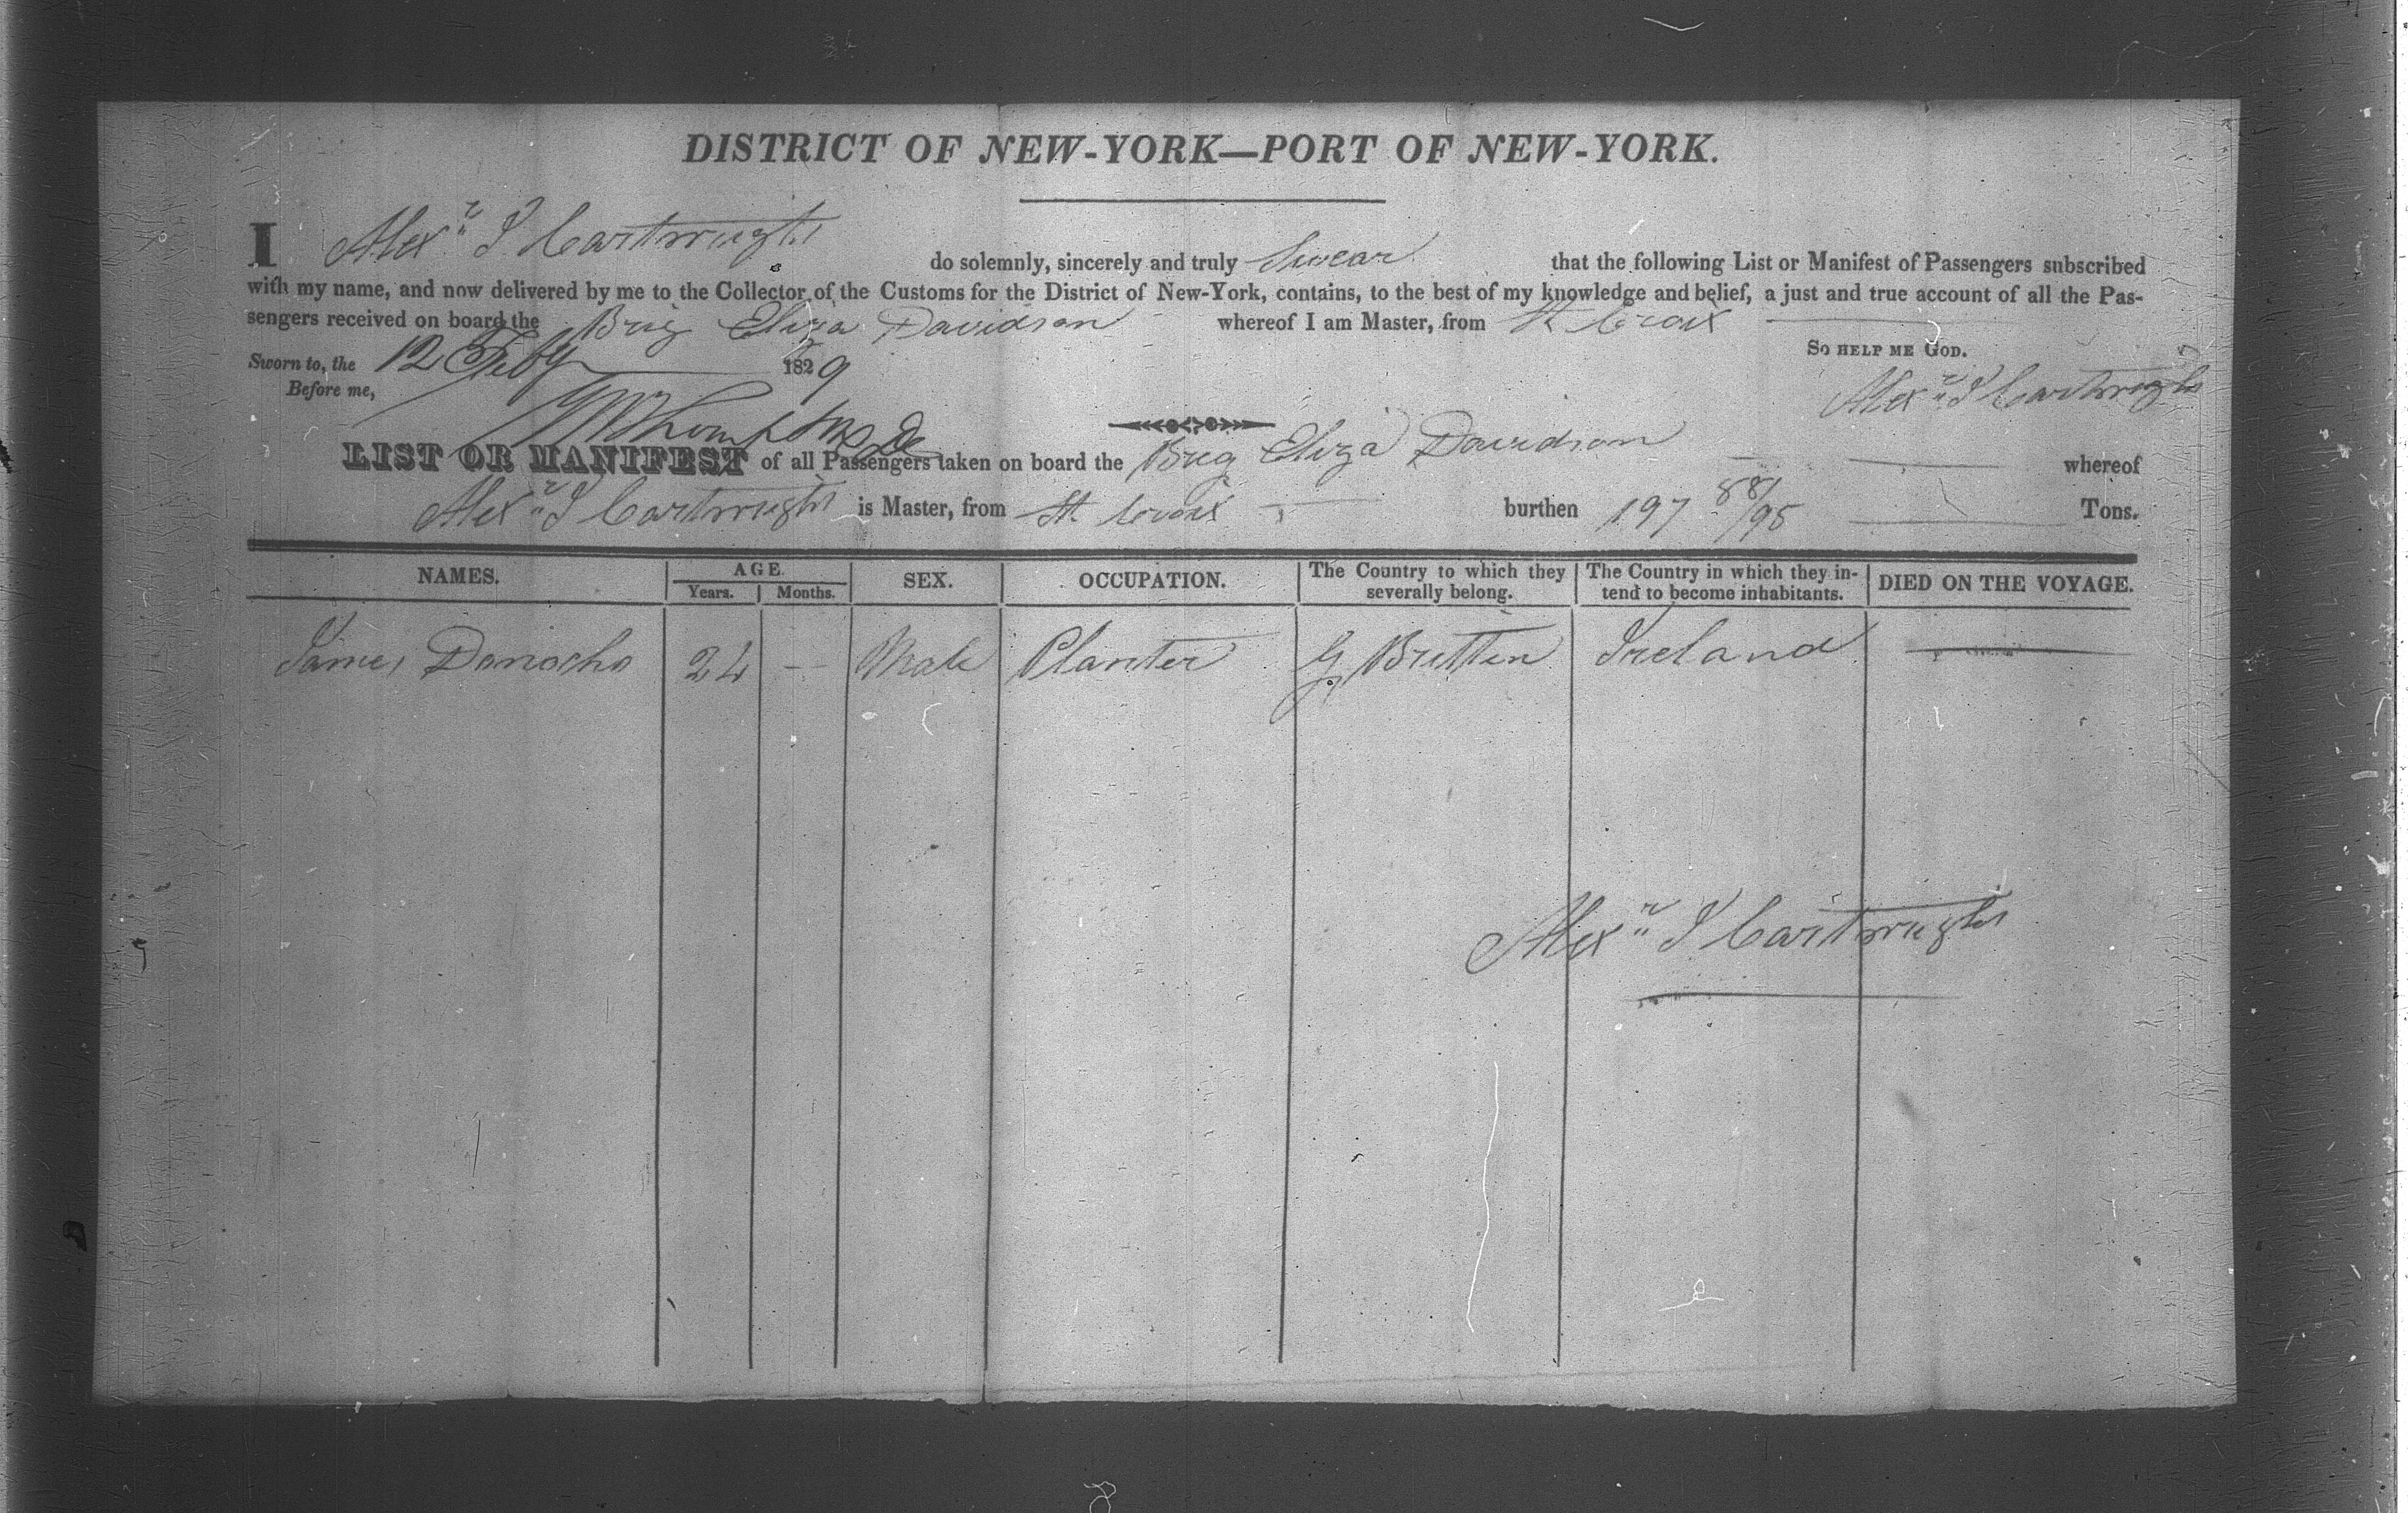 DISTRICT OF NEW-YORK—PORT OF NEW-YORK.
I Alexr I Cartwright do solemnly, sincerely and truly Swear that the following List or Manifest of Passengers subscribed
with my name, and now delivered by me to the Collector of the Customs for the District of New-York, contains, to the best of my knowledge and belief, a just and true account of all the Pas-
sengers received on board the Brig Eliza Davidson whereof I am Master, from St Croix
So help me God.
Sworn to, the 12 Feby 1829
Before me,
Alexr I Cartwright
LIST OR MANIFEST of all Passengers taken on board the Brig Eliza Davidson whereof
Alexr I Cartwright is Master, from St. Croix burthen 197 88/95 Tons.
NAMES. AGE. Years. Months. SEX. OCCUPATION. The Country to which they severally belong. The Country in which they in-tend to become inhabitants. DIED ON THE VOYAGE.
James Donocho 24 — Male Planter G Britten Ireland —
Alexr I Cartwright